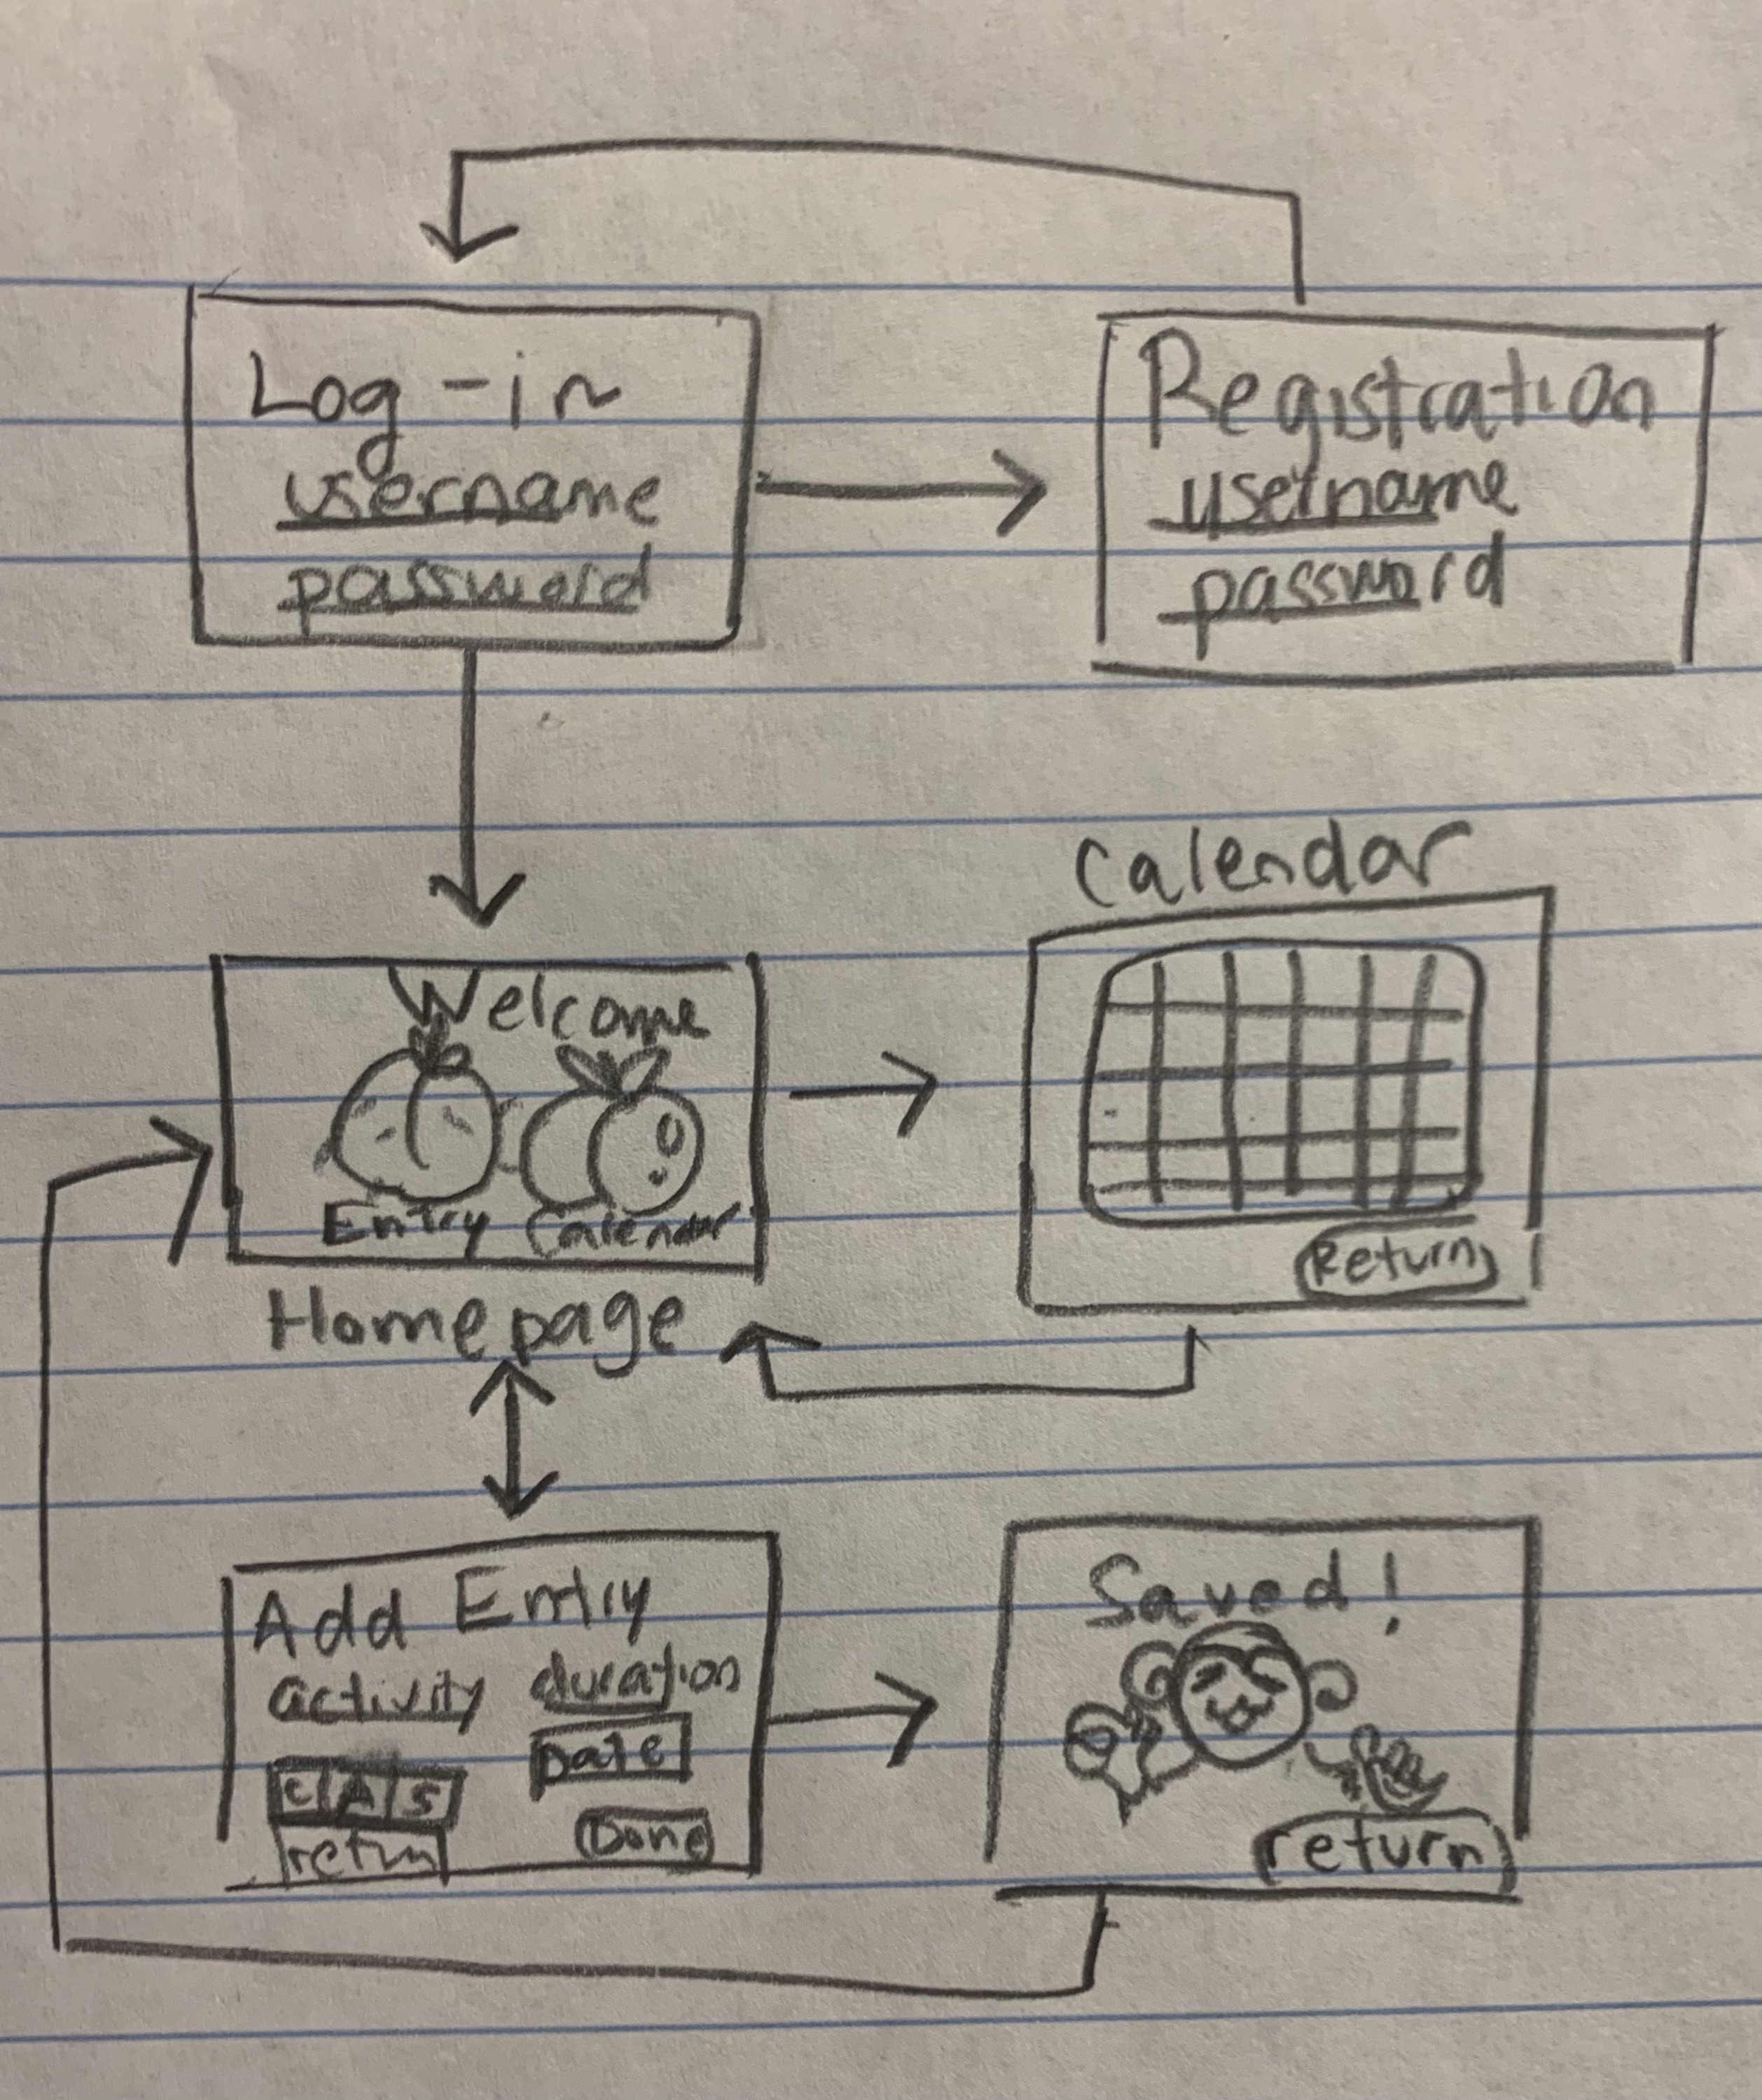 Log-in
username
password
Registration
username
password
Welcome
Entry Calendar
Homepage
Calendar
Return
Add Entry
activity duration
Date
C A S
return
Done
Saved!
return